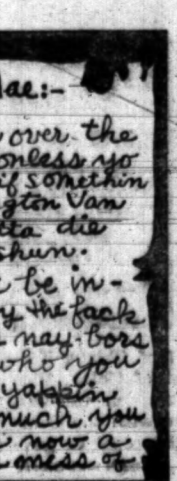 lae:-
over the
onless yo
if somethin
gton Van
tta die
shun.
be in-
y the fack
nay-bors
who you
yappin
much you
now a
mess of